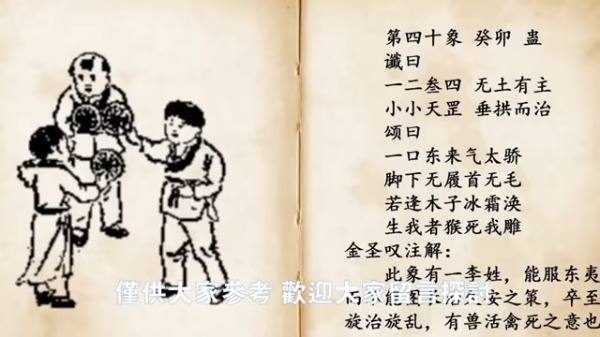 第四十象 癸卯 蛊
谶曰
一二叁四 无土有主
小小天罡 垂拱而治
颂曰
一口东来气太骄
脚下无履首无毛
若逢木子冰霜涣
生我者猴死我雕
金圣叹注解:
此象有一李姓，能服东夷
而不能图长治久安之策，卒至
旋治旋乱，有兽活禽死之意也
僅供大家參考 歡迎大家留言探討